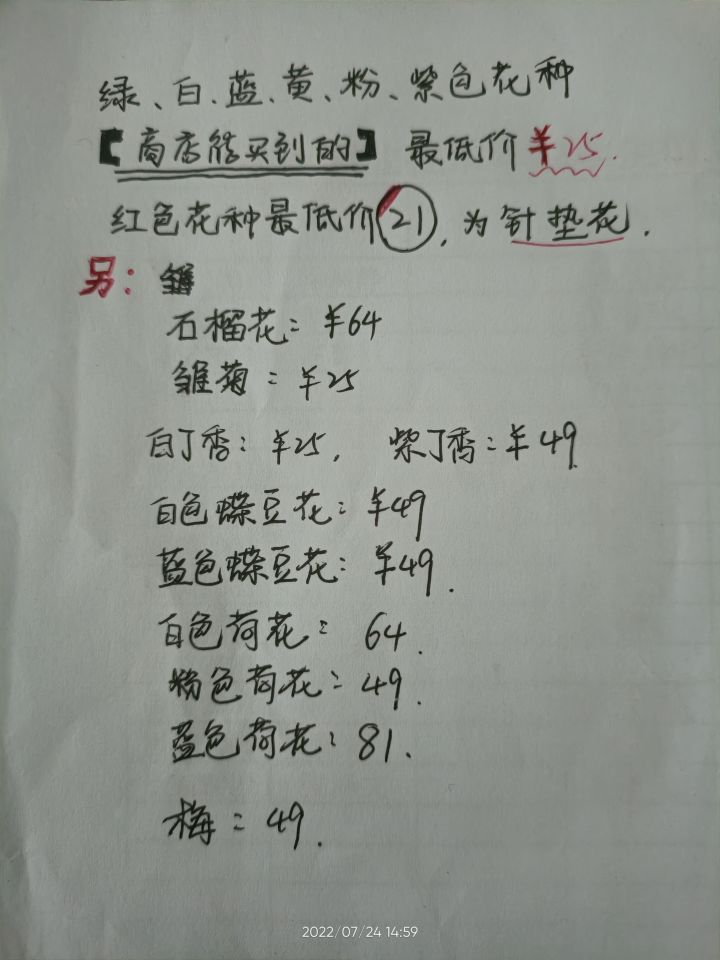 绿、白、蓝、黄、粉、紫色花种
【商店能买到的】 最低价 ¥25.
红色花种最低价21, 为针垫花.
另:
石榴花: ¥64
雏菊: ¥25
白丁香: ¥25, 紫丁香: ¥49.
白色蝶豆花: ¥49
蓝色蝶豆花: ¥49.
白色荷花: 64.
粉色荷花: 49.
蓝色荷花: 81.
梅: 49.
2022/07/24 14:59